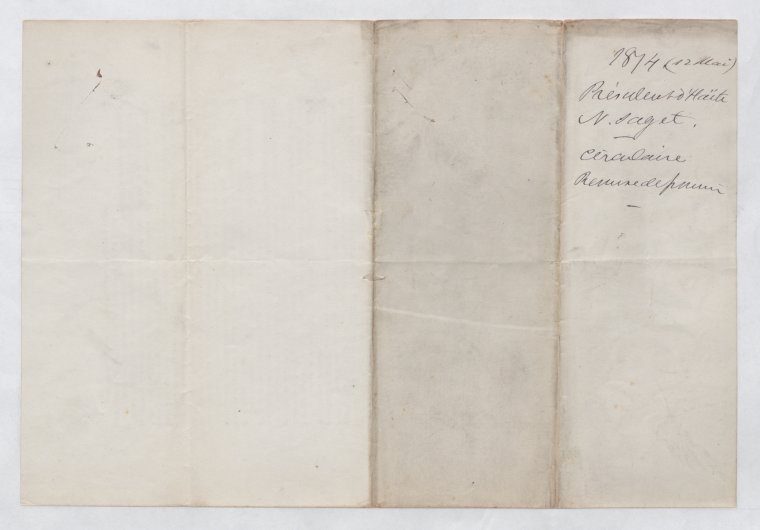 1874 (12 Mai)
Président d'Haïti
N. Saget.
Circulaire
Remise de pouvoir